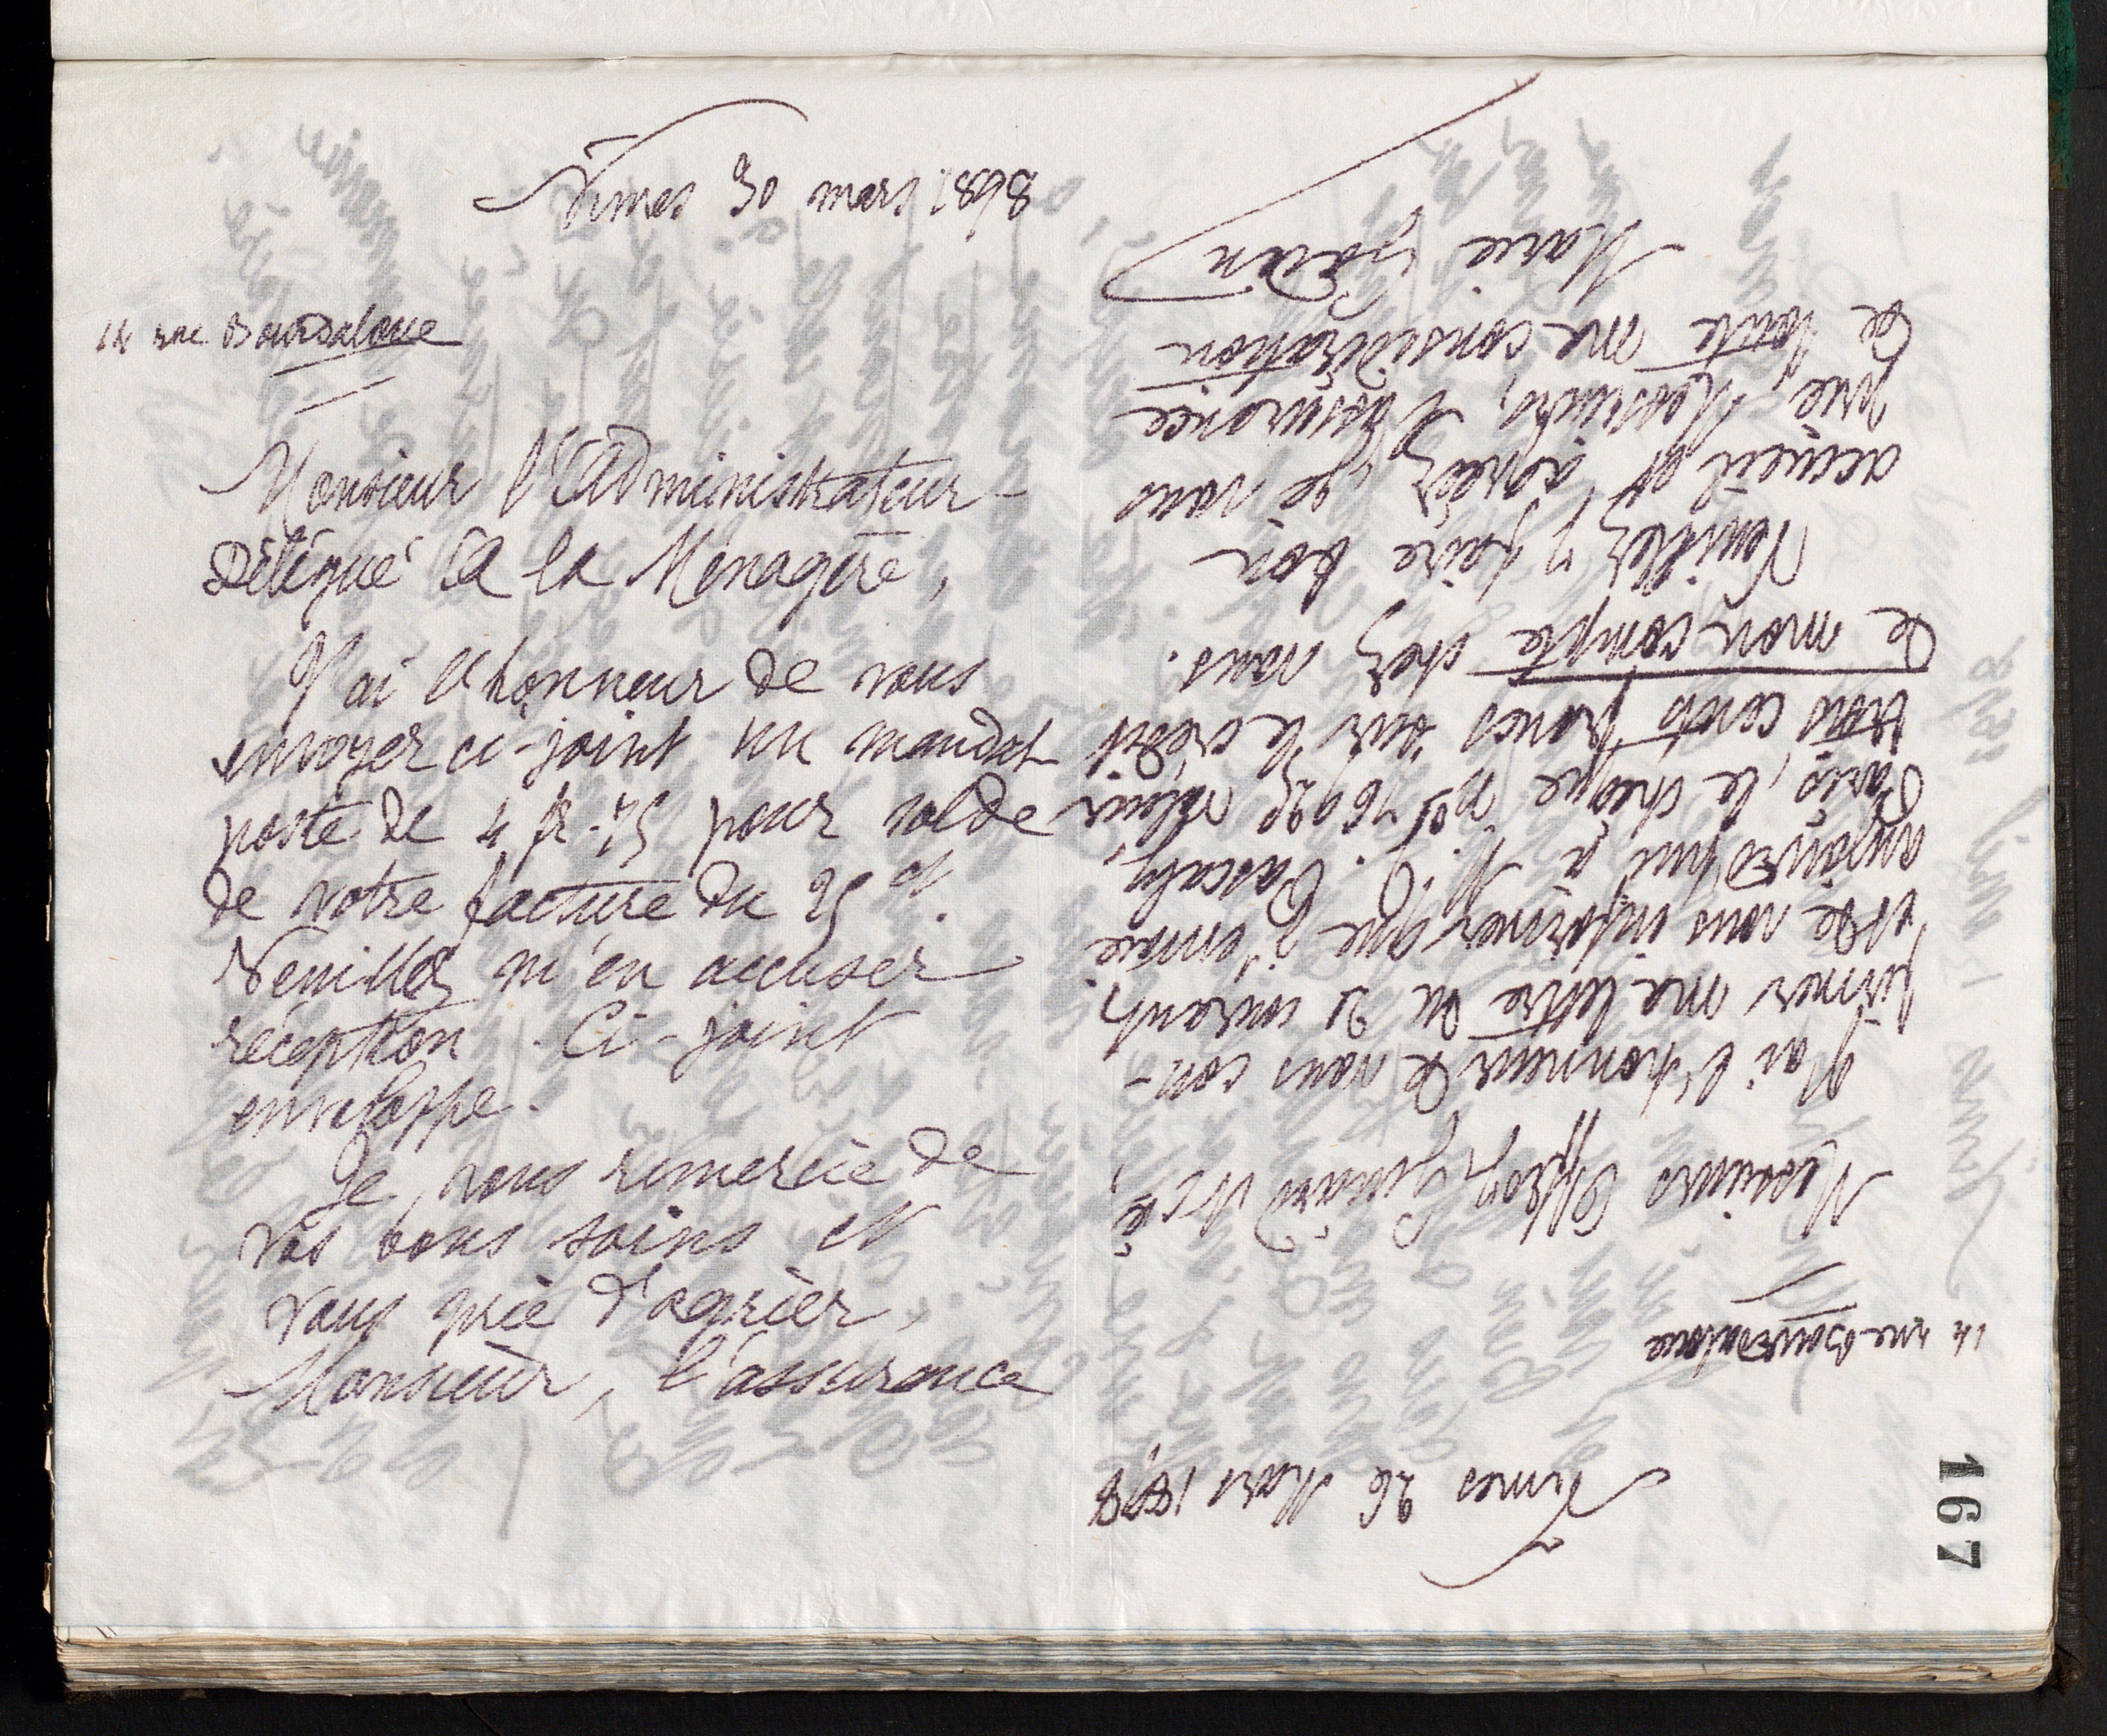 Nîmes 30 mars 1898
14 rue Bourdaloue
Monsieur l'Administrateur-
Délégué à la Ménagère,
J'ai l'honneur de vous
envoyer ci-joint un mandat
poste de 4 fr. 75 pour solde
de votre facture du 25 ct.
Veuillez m'en accuser
réception. Ci-joint
enveloppe.
Je vous remercie de
vos bons soins et
vous prie d'agréer,
Monsieur, l'assurance
Nîmes 26 Mars 1898
14 rue Bourdaloue
Messieurs
J'ai l'honneur de vous con-
firmer ma lettre du 21 courant,
et de vous informer que j'envoie
aujourd'hui à M. J. Pascaly,
Paris, le chèque no 76925 valeur
trois cents francs sur le crédit
de mon compte chez vous.
Veuillez y faire bon
accueil et agréez, je vous
prie, Messieurs, l'assurance
de toute ma considération
Marie Godin
167